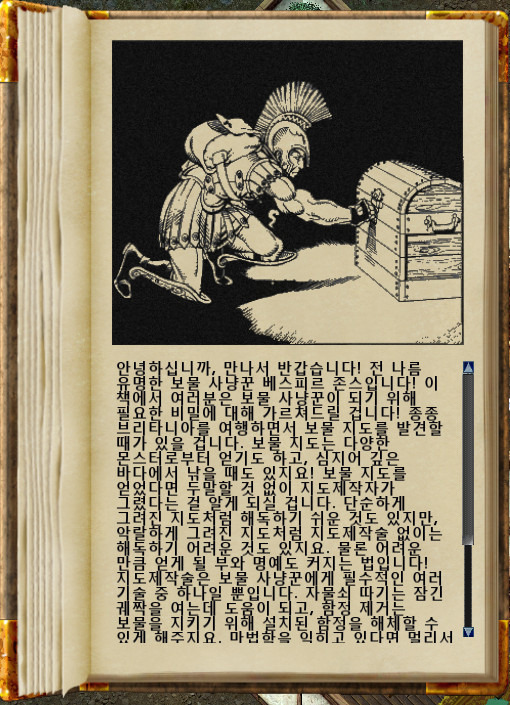 안녕하십니까, 만나서 반갑습니다! 전 나름
유명한 보물 사냥꾼 베스피르 존스입니다! 이
책에서 여러분은 보물 사냥꾼이 되기 위해
필요한 비밀에 대해 가르쳐드릴 겁니다! 종종
브리타니아를 여행하면서 보물 지도를 발견할
때가 있을 겁니다. 보물 지도는 다양한
몬스터로부터 얻기도 하고, 심지어 깊은
바다에서 낚을 때도 있지요! 보물 지도를
얻었다면 두말할 것 없이 지도제작자가
그렸다는 걸 알게 되실 겁니다. 단순하게
그려진 지도처럼 해독하기 쉬운 것도 있지만,
악랄하게 그려진 지도처럼 지도제작술 없이는
해독하기 어려운 것도 있지요. 물론 어려운
만큼 얻게 될 부와 명예도 커지는 법입니다!
지도제작술은 보물 사냥꾼에게 필수적인 여러
기술 중 하나일 뿐입니다. 자물쇠 따기는 잠긴
궤짝을 여는데 도움이 되고, 함정 제거는
보물을 지키기 위해 설치된 함정을 해체할 수
있게 해주지요. 마법학을 익히고 있다면 멀리서